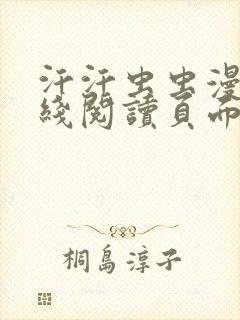 汗汗虫虫漫
綫閱讀頁而
桐島淳子